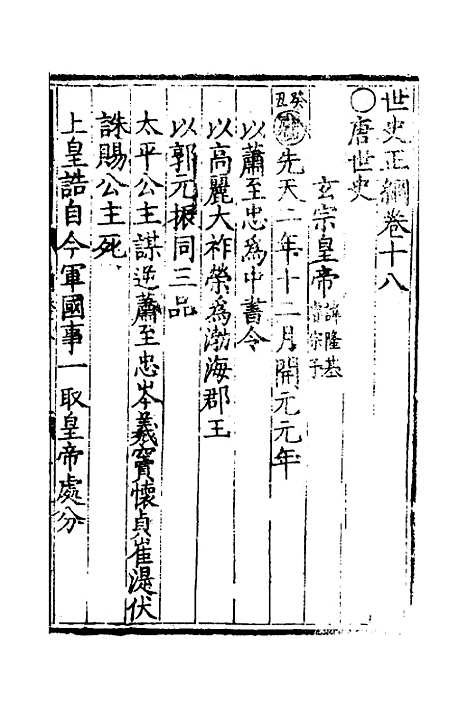 世史正綱卷十八
○唐世史
玄宗皇帝 諱隆基睿宗子
癸丑 先天二年十二月開元元年
以蕭至忠為中書令
以高麗大祚榮為渤海郡王
以郭元振同三品
太平公主謀逆蕭至忠岑羲竇懷貞崔湜伏
誅賜公主死
上皇誥自今軍國事一取皇帝處分